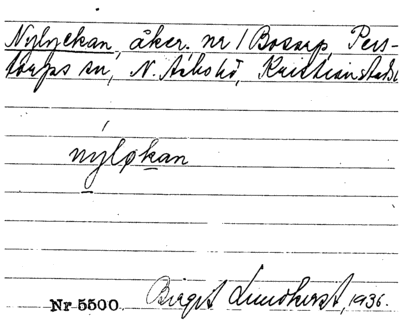 Nylyckan, åker. nr 1 Bosarp, Pers-
torps sn, N. Åsbo hd, Kristianstads l.
nýløkan
Nr 5500 Birgit Lundqvist, 1936.